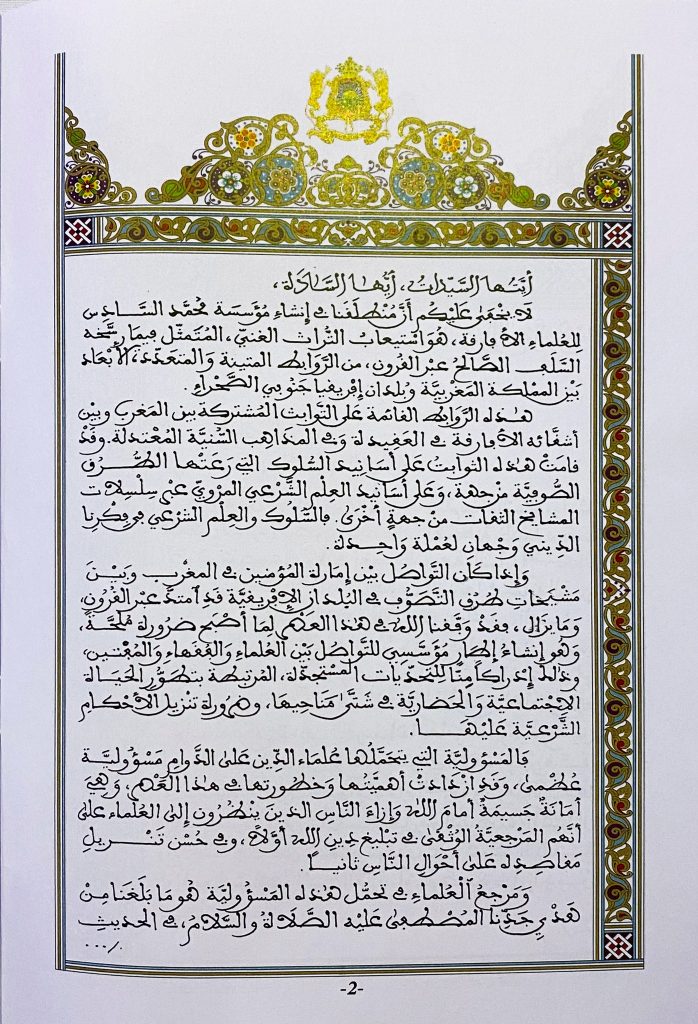 أيتها السيدات، أيها السادة،
لا يخفى عليكم أن منطلقنا في إنشاء مؤسسة محمد السادس
للعلماء الأفارقة، هو استيعاب التراث الغني، المتمثل فيما رسخه
السلف الصالح عبر القرون، من الروابط المتينة والمتعددة الأبعاد
بين المملكة المغربية وبلدان إفريقيا جنوبي الصحراء.
هذه الروابط القائمة على الثوابت المشتركة بين المغرب وبين
أشقائه الأفارقة في العقيدة وفي المذاهب السنية المعتدلة. وقد
قامت هذه الثوابت على أسانيد السلوك التي رعتها الطرق
الصوفية من جهة، وعلى أسانيد العلم الشرعي المروي عبر سلسلات
المشايخ الثقات من جهة أخرى. فالسلوك والعلم الشرعي في فكرنا
الديني وجهان لعملة واحدة.
وإذا كان التواصل بين إمارة المؤمنين في المغرب وبين
مشيخات طرق التصوف في البلدان الإفريقية قد امتد عبر القرون،
وما يزال، فقد وفقنا الله في هذا العهد لما أصبح ضرورة ملحة،
وهو إنشاء إطار مؤسسي للتواصل بين العلماء والفقهاء والمفتين،
وذلك إدراكا منا للتحديات المستجدة، المرتبطة بتطور الحياة
الاجتماعية والحضارية في شتى مناحيها، وضرورة تنزيل الأحكام
الشرعية عليها.
فالمسؤولية التي يتحملها علماء الدين على الدوام مسؤولية
عظمى، وقد ازدادت أهميتها وخطورتها في هذا العهد، وهي
أمانة جسيمة أمام الله وإزاء الناس الذين ينظرون إلى العلماء على
أنهم المرجعية الوثقى في تبليغ دين الله أولا، وفي حسن تنزيل
مقاصده على أحوال الناس ثانيا.
ومرجع العلماء في تحمل هذه المسؤولية هو ما بلغنا من
هدي جدنا المصطفى عليه الصلاة والسلام، في الحديث
.../.
-2-